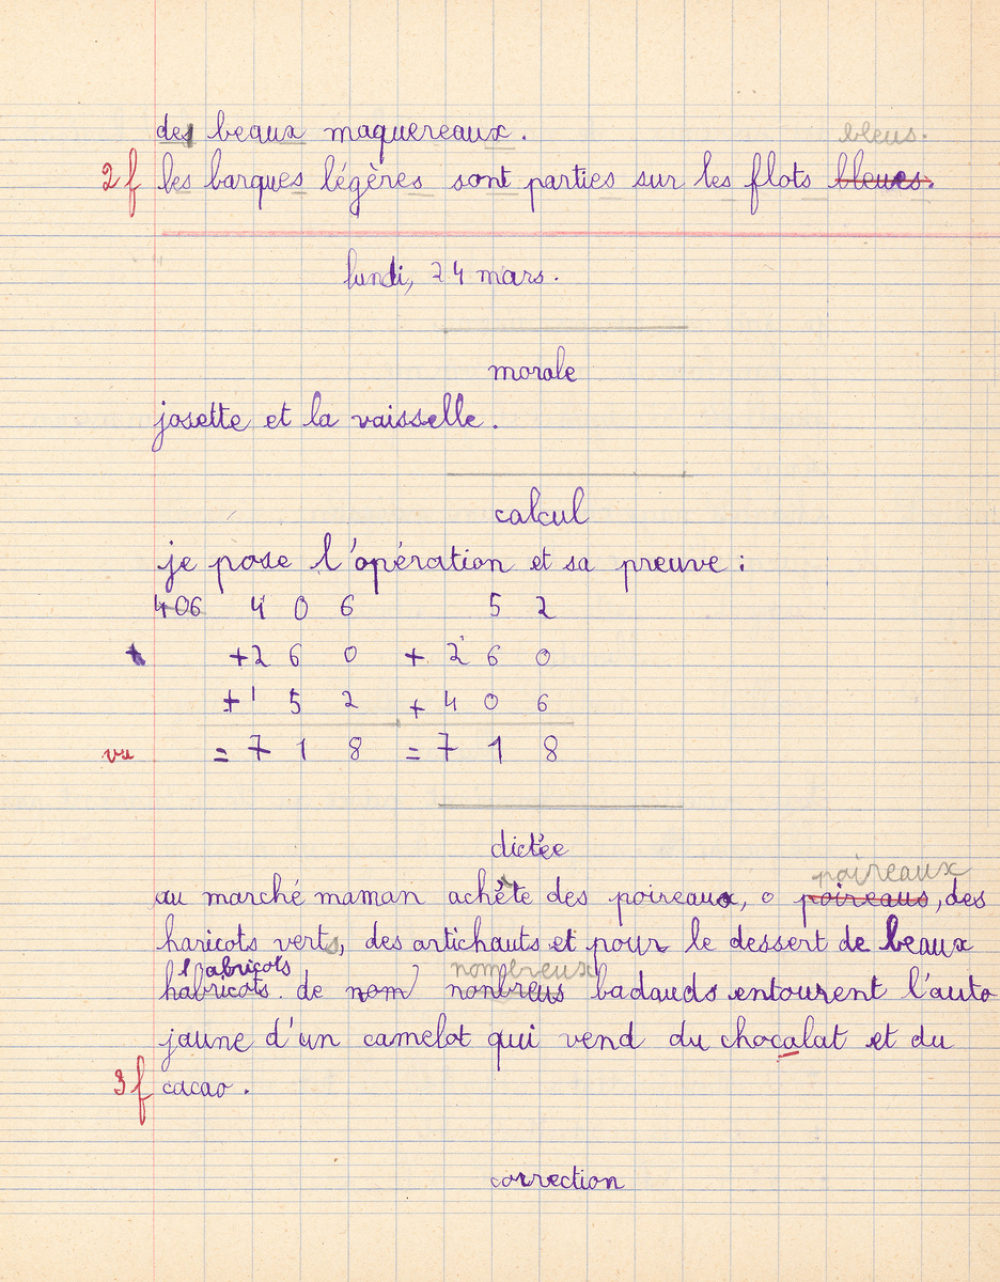 des beaux maquereaux.
bleus.
2f les barques légères sont parties sur les flots bleues.
lundi, 24 mars.
morale
josette et la vaisselle.
calcul
je pose l'opération et sa preuve :
406 4 0 6 5 2
+ +2 6 0 + 2 6 0
+ 1 5 2 + 4 0 6
vu = 7 1 8 = 7 1 8
dictée
poireaux
au marché maman achète des poireaux, o poireaus, des
haricots verts, des artichauts et pour le dessert de beaux
abricots nombreux
habricots. de nom nonbreus badauds entourent l'auto
jaune d'un camelot qui vend du chocalat et du
3f cacao.
correction